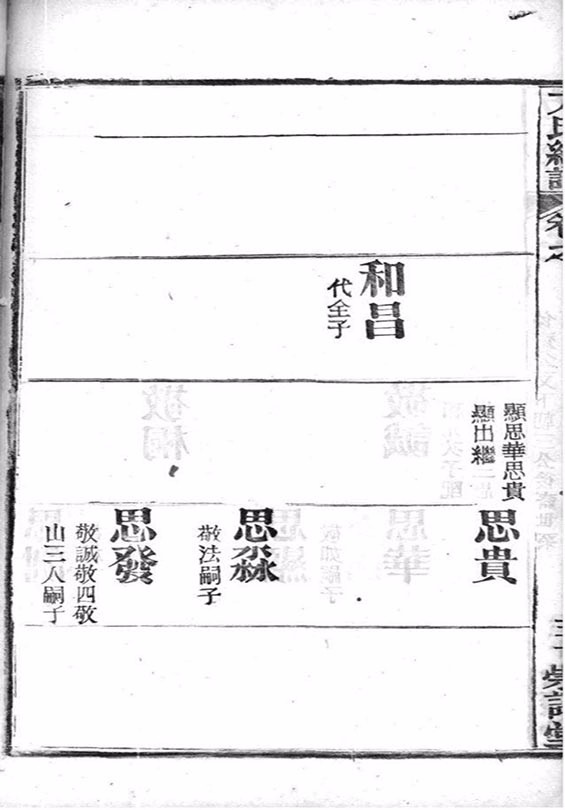 和昌
代全子
顯思華思貴
顯出繼
思貴
思淼
敬法嗣子
思發
敬誠敬四敬
山三人嗣子